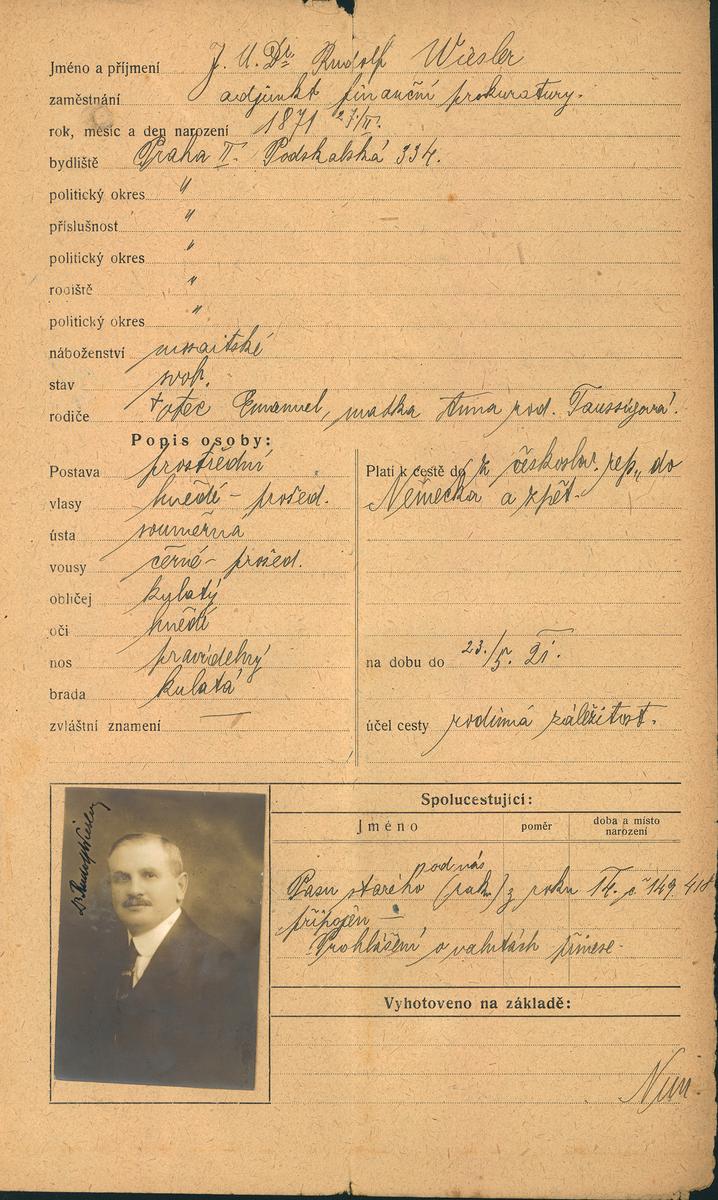 Jméno a příjmení J. U. Dr. Rudolf Wiesler
zaměstnání adjunkt finanční prokuratury.
rok, měsíc a den narození 1871 27/II.
bydliště Praha II. Podskalská 334.
politický okres "
příslušnost "
politický okres "
rodiště "
politický okres "
náboženství mosaitské
stav svob.
rodiče † otec Emanuel, matka Anna rod. Taussigová.
Popis osoby:
Postava prostřední
vlasy hnědé - prošed.
ústa souměrná
vousy černé - prošed.
obličej kulatý
oči hnědé
nos pravidelný
brada kulatá
zvláštní znamení —
Platí k cestě do z českoslov. rep. do
Německa a zpět.
na dobu do 23./5. 21.
účel cesty rodinná záležitost.
Dr Rudolf Wiesler
Spolucestující:
Jméno poměr doba a místo narození
pod nás
Pasu starého z roku č 149 418
připojen —
Prohlášení o valutách přinese.
Vyhotoveno na základě: